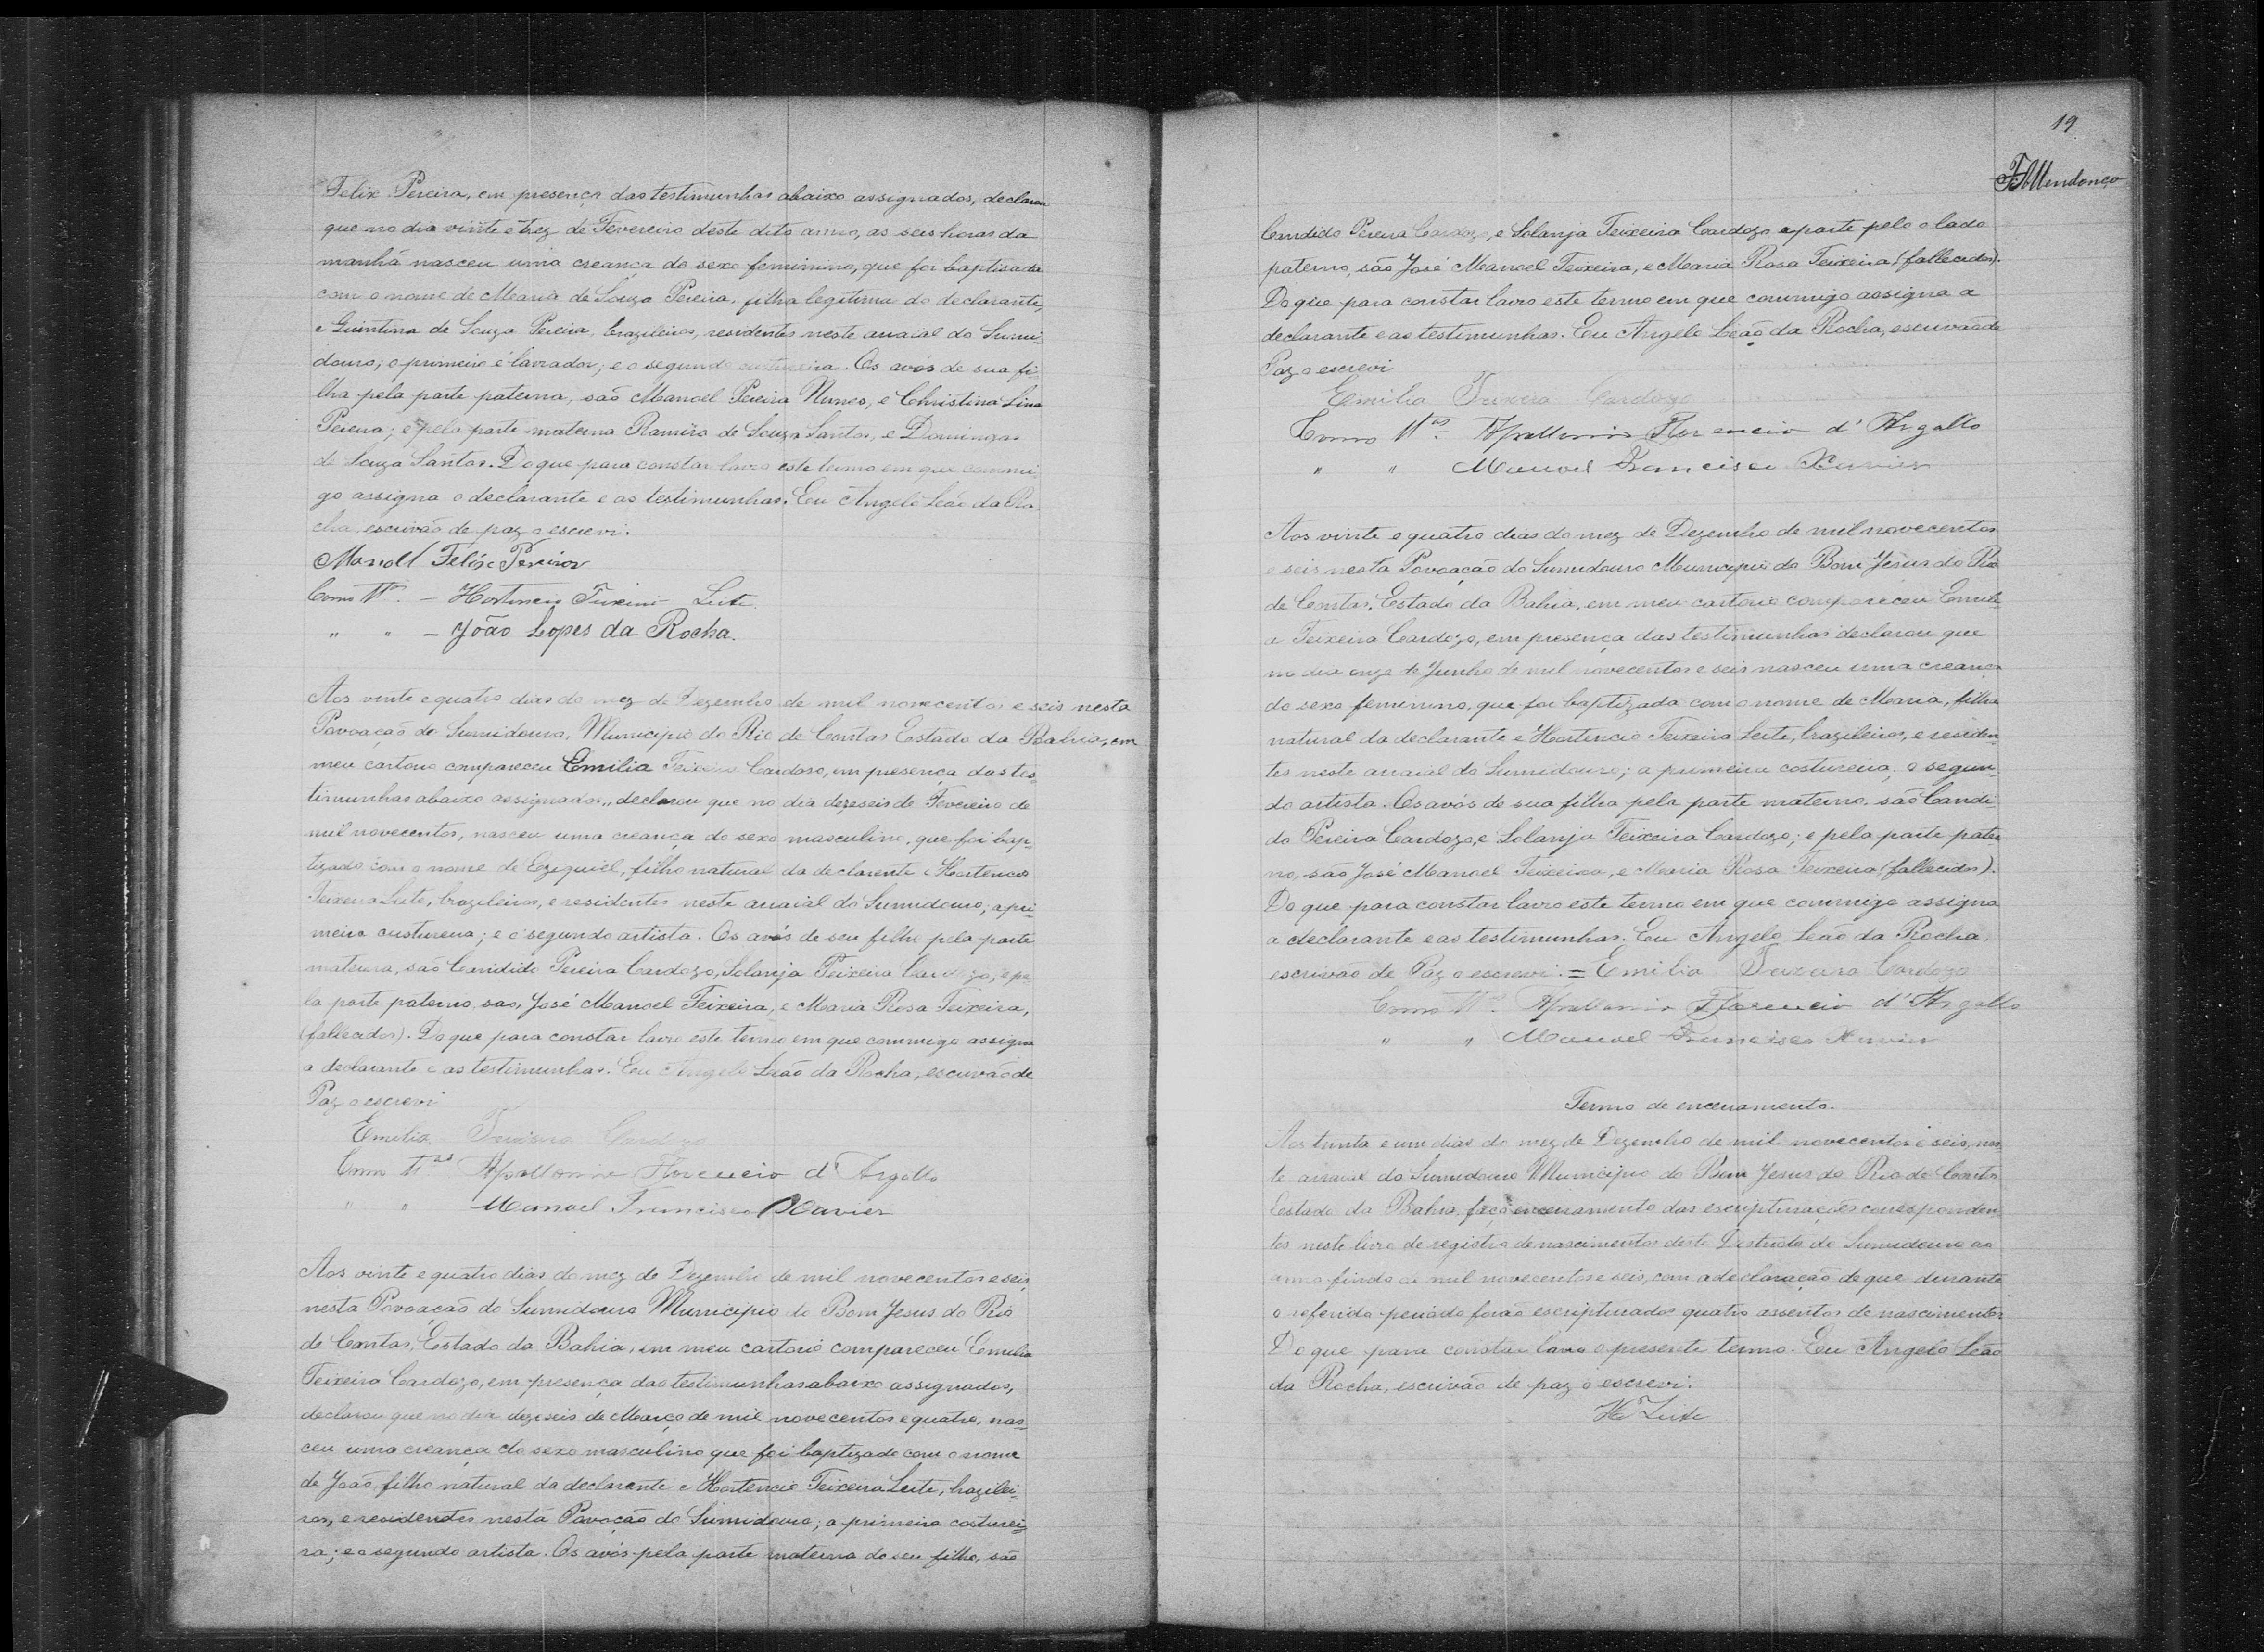 Felix Pereira, em presença das testimunhas abaixo assignados, declarou
que no dia vinte e trez de Fevereiro deste dito anno, as seis horas da
manhã nasceu uma creança do sexo feminino, que foi baptisada
com o nome de Maria de Souza Pereira, filha legitima do declarante,
e Quintina de Souza Pereira, brazileiros, residentes neste arraial do Sumi-
douro; o primeiro é lavrador; e o segundo custureira. Os avós de sua fi-
lha pela parte paterna, são Manoel Pereira Nunes, e Christina Lina
Pereira; e pela parte materna Ramiro de Souza Santos, e Domingas
de Souza Santos. Do que para constar lavro este termo em que commi-
go assigna o declarante e as testimunhas. Eu Angelo Leão da Ro
cha, escrivão de paz o escrevi.
Manoel Felix Pereira
Como ttas. – Hortencio Teixeira Leite.
" " – João Lopes da Rocha.
Aos vinte e quatro dias do mez de Dezembro de mil novecentos e seis nesta
Povoação do Sumidouro, Municipio do Rio de Contas Estado da Bahia, em
meu cartorio compareceu Emilia Teixeira Cardoso, em presença das tes-
timunhas abaixo assignados, declarou que no dia dezeseis de Fevereiro de
mil novecentos, nasceu uma creança do sexo masculino, que foi bap-
tizado com o nome de Ezequiel, filho natural da declarente e Hortencio
Teixeira Leite, brazileiros, e residentes neste arraial do Sumidouro; a pri-
meira custureira; e o segundo artista. Os avós de seu filho pela parte
materna, são Candido Pereira Cardozo, Solanja Teixeira Cardozo, e pe-
la parte paterno são, José Manoel Teixeira, e Maria Rosa Teixeira,
(fallecidos). Do que para constar lavro este termo em que commigo assigna
a declarante e as testimunhas. Eu Angelo Leão da Rocha, escrivão de
Paz o escrevi
Emilia Teixeira Cardozo
Como ttas Apollonio Florencio d'Argollo
" " Manoel Francisco Xavier
Aos vinte e quatro dias do mez de Dezembro de mil novecentos e seis,
nesta Povoação do Sumidouro Municipio do Bom Jesus do Rio
de Contas, Estado da Bahia, em meu cartorio compareceu Emilia
Teixeira Cardozo, em presença das testimunhas abaixo assignados,
declarou que no dia deziseis de Março de mil novecentos e quatro, nas-
ceu uma creança do sexo masculino que foi baptizado com o nome
de João, filho natural da declarante e Hortencio Teixeira Leite, brazilei-
ros, e residentes nesta Povoação do Sumidouro; a primeira costurei-
ra; e o segundo artista. Os avós pela parte materna do seu filho, são
19
FAMendonço
Candido Pereira Cardozo, e Solanja Teixeira Cardozo e parte pelo o lado
paterno, são José Manoel Teixeira, e Maria Rosa Teixeira (fallecidos).
Do que para constar lavro este termo em que commigo assigna a
declarante e as testimunhas. Eu Angelo Leão da Rocha, escrivão de
Paz o escrevi
Emilia Teixeira Cardozo
Como ttas. Apollonio Florencio d'Argollo
" " Manoel Francisco Xavier
Aos vinte e quatro dias do mez de Dezembro de mil novecentos
e seis nesta Povoação do Sumidouro Municipio do Bom Jesus do Rio
de Contas, Estado da Bahia, em meu cartorio compareceu Emili-
a Teixeira Cardozo, em presença das testimunhas declarou que
no dia onze de Junho de mil novecentos e seis nasceu uma creança
do sexo feminino, que foi baptizada com o nome de Maria, filha
natural da declarante e Hortencio Teixeira Leite, brazileiros, e residen-
tes neste arraial do Sumidouro; a primeira costureira, o segun-
do artista. Os avós de sua filha pela parte materno, são Candi-
do Pereira Cardozo, e Solanja Teixeira Cardozo; e pela parte pater
no, são José Manoel Teixeira, e Maria Rosa Teixeira (fallecidos).
Do que para constar lavro este termo em que commigo assigna
a declarante e as testimunhas. Eu Angelo Leão da Rocha,
escrivão de Paz o escrevi. = Emilia Teixeira Cardozo
Como ttas. Apollonio Florencio d'Argollo
" " Manoel Francisco Xavier
Termo de encerramento.
Aos trinta e um dias do mez de Dezembro de mil novecentos e seis, nes-
te arraial do Sumidouro Municipio do Bom Jesus do Rio de Contas
Estado da Bahia, faço encerramento das escripturações corresponden-
tes neste livro de registro de nascimentos deste Districto do Sumidouro ao
anno findo de mil novecentos e seis, com a declaração de que durante
o referido periodo forão escripturados quatro assentos de nascimentos
Do que para constar lavro o presente termo. Eu Angelo Leão
da Rocha, escrivão de paz o escrevi.
H. T. Leite